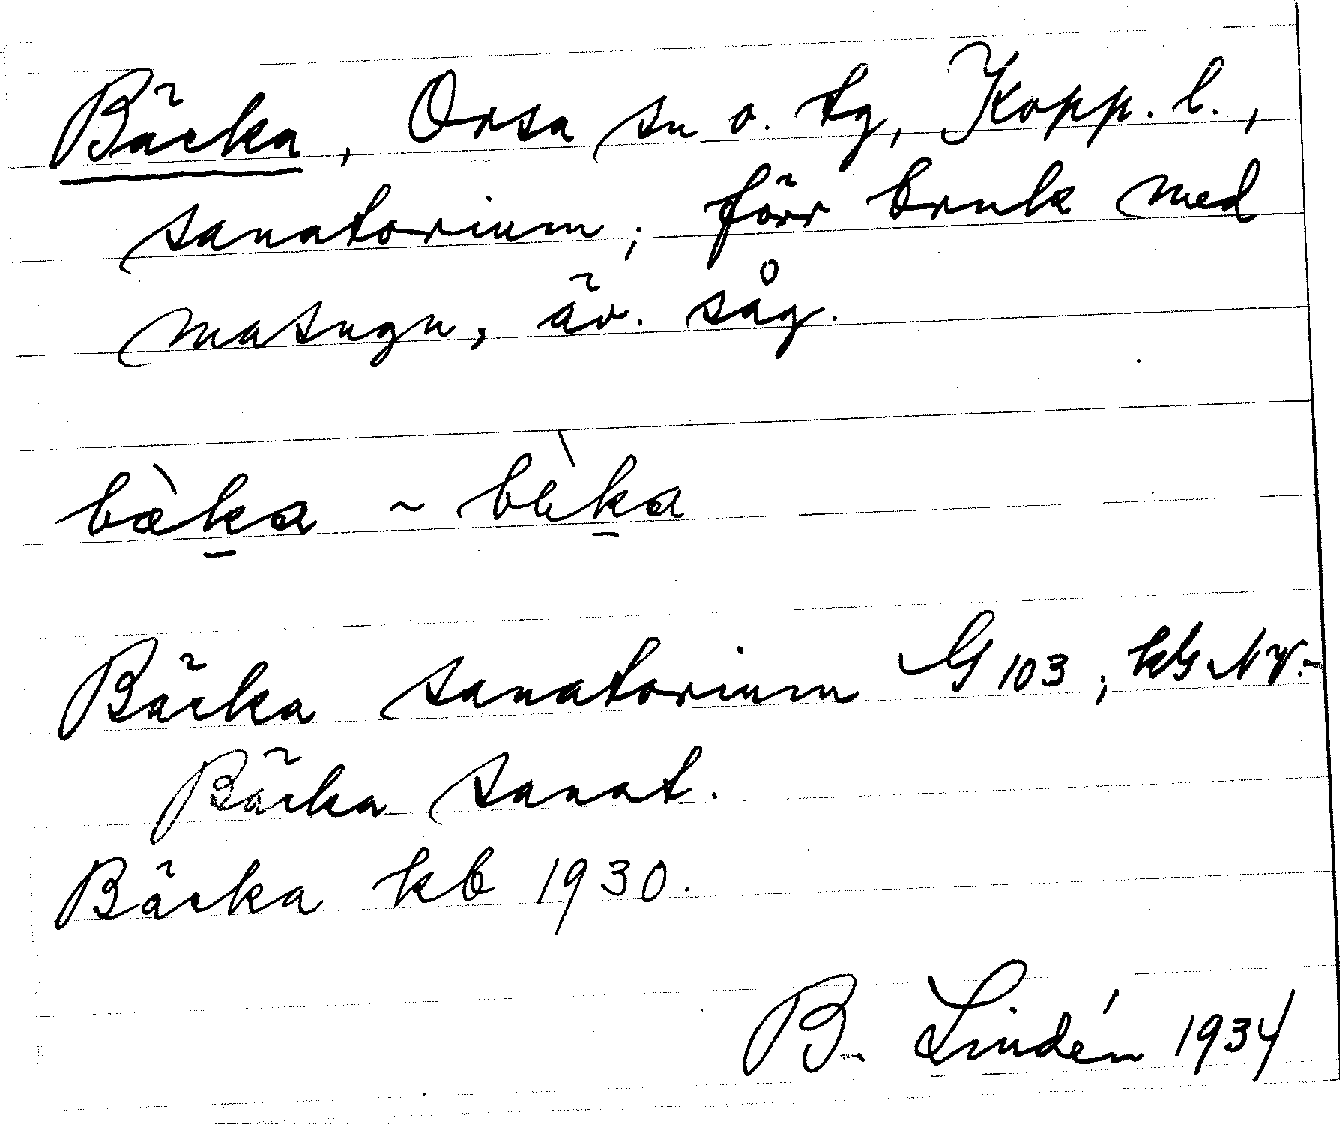 Bäcka, Orsa sn o. tg, Kopp. l.,
sanatorium; förr bruk med
masugn, äv. såg.
bæ̀ka ~ bèka
Bäcka sanatorium G 103; kG NV.-
Bäcka sanat.
Bäcka kb 1930.
B. Lindén 1934